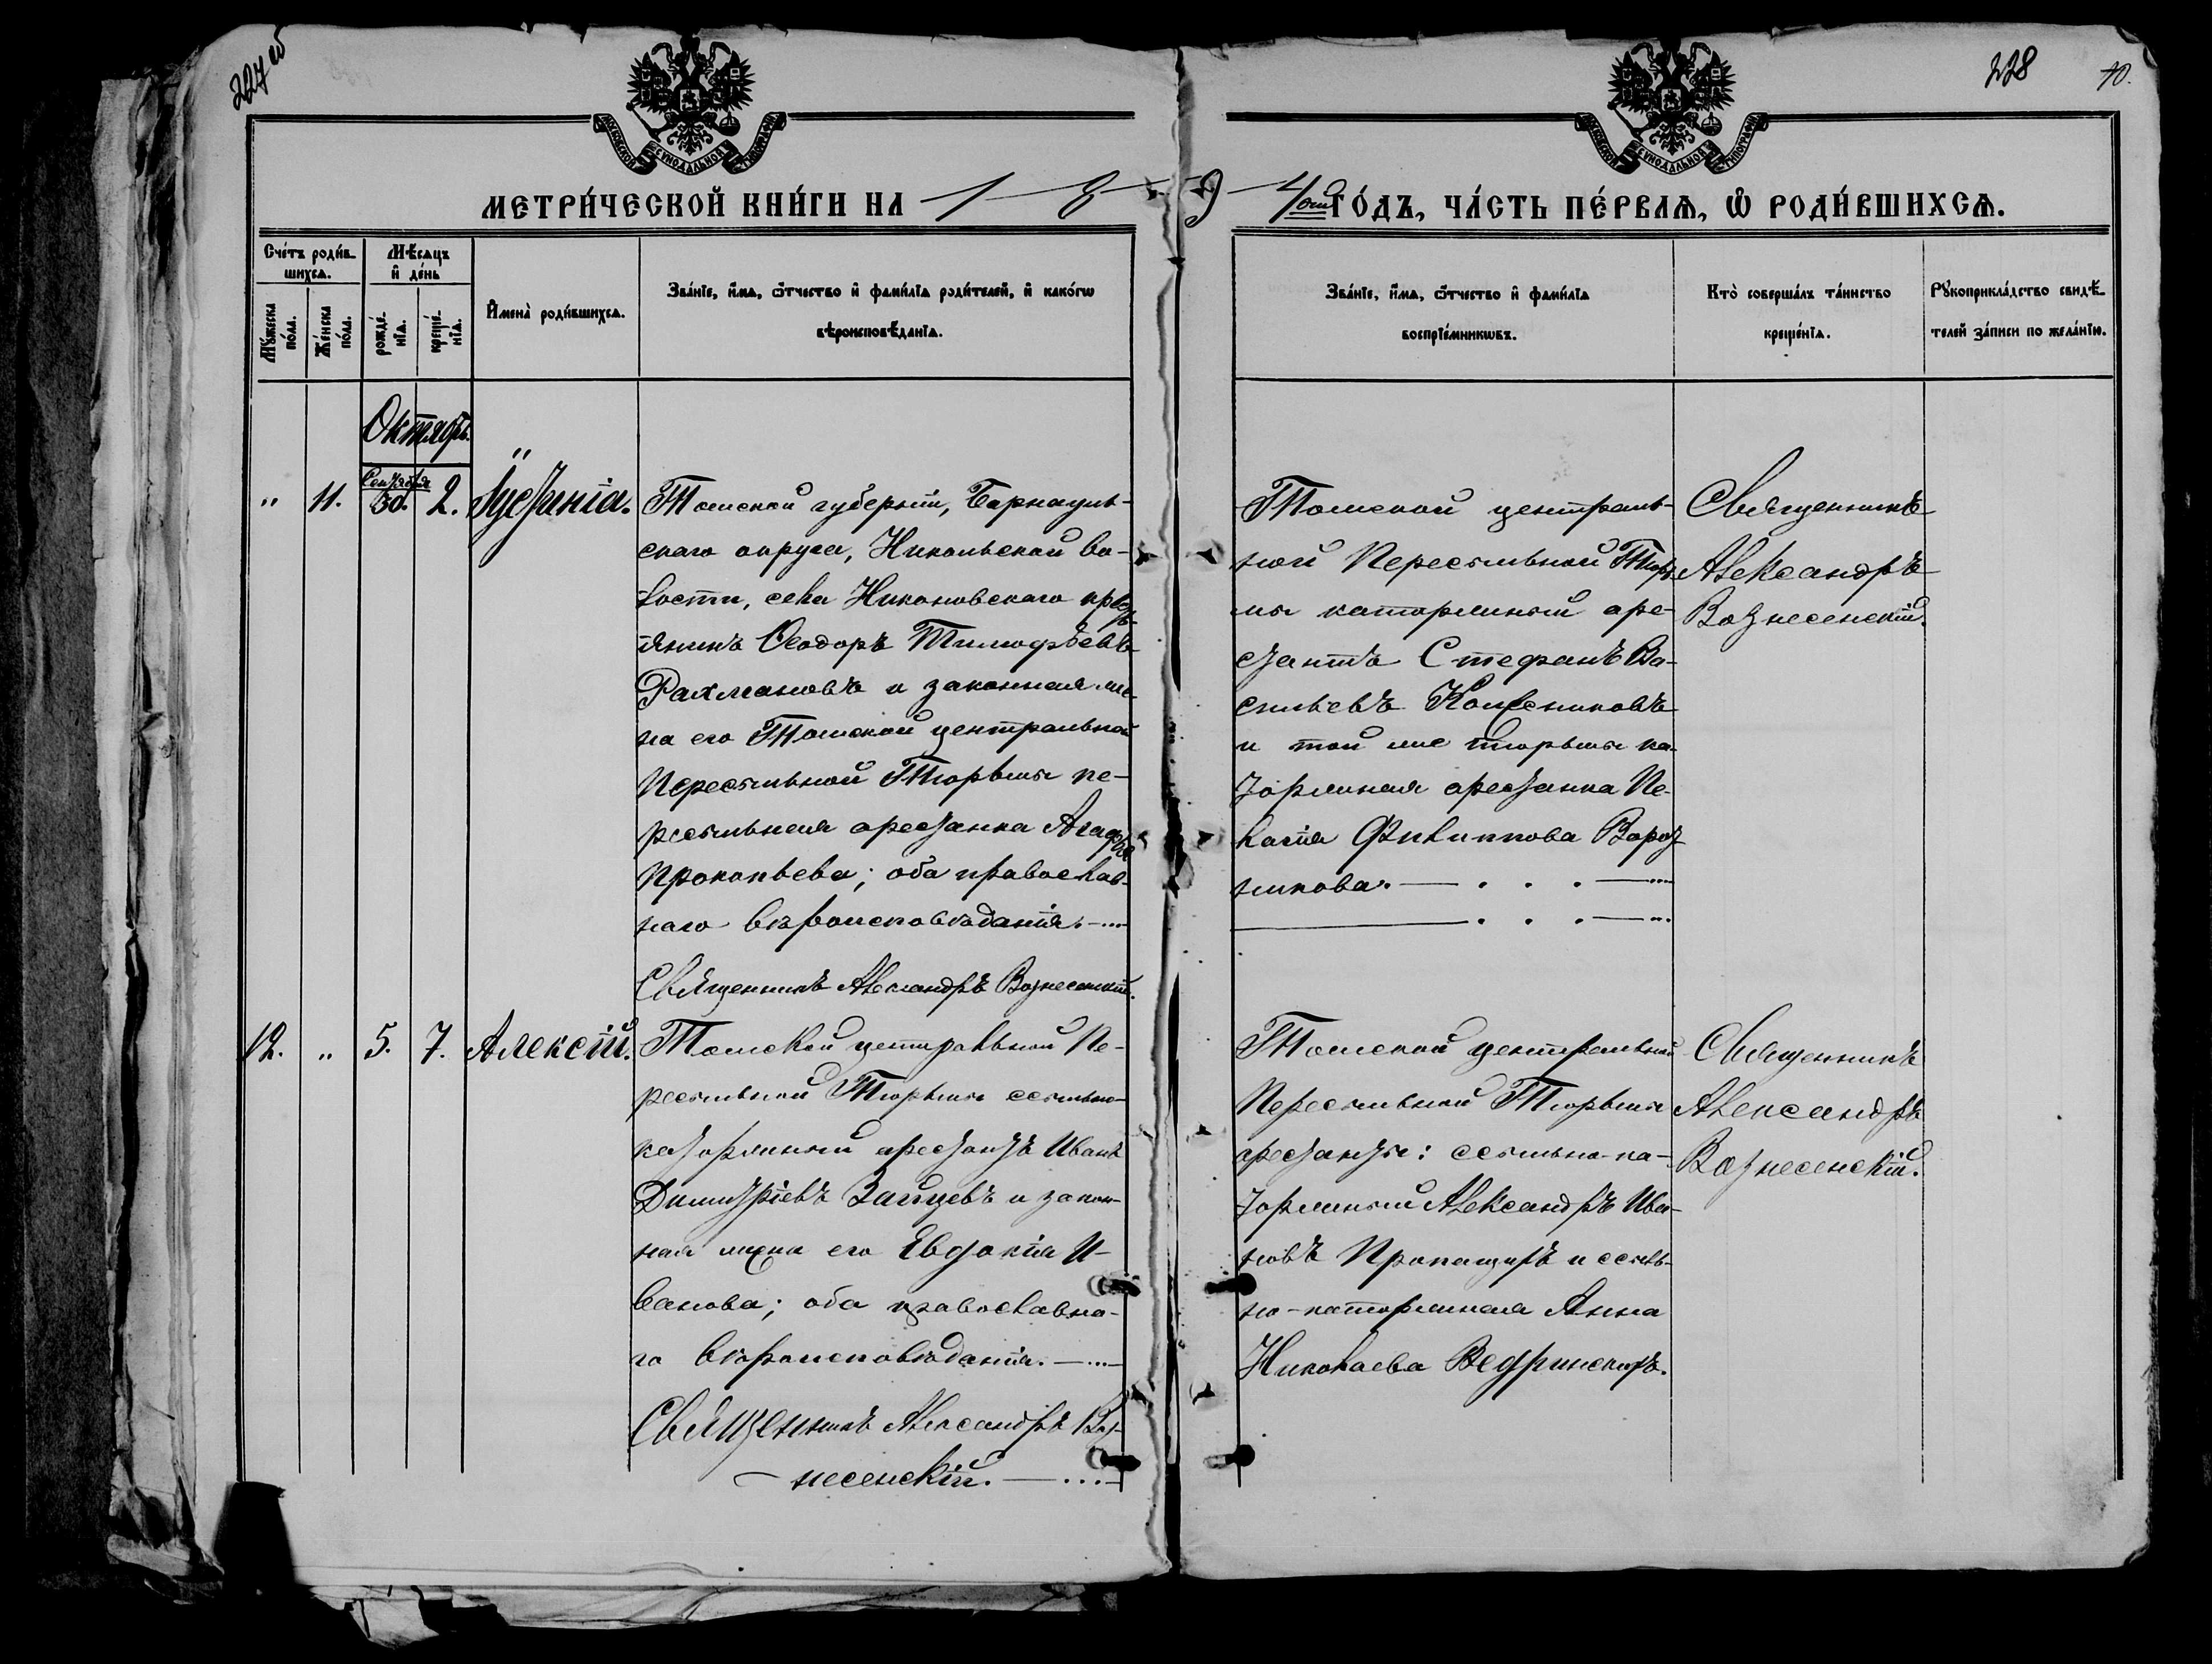 227 об
228
10.
МОСКОВСКОЙ СѴНОДАЛЬНОЙ ТИПОГРАФІИ
МОСКОВСКОЙ СѴНОДАЛЬНОЙ ТИПОГРАФІИ
МЕТРИ́ЧЕСКОЙ КНИ́ГИ НА 1 8 9 4ый ГО́ДЪ, ЧА́СТЬ ПЕ́РВАѦ, Ѡ РОДИ́ВШИХСѦ.
Сче́тъ роди́в-
шихсѧ.
Мꙋ́жеска
по́ла.
Же́нска
по́ла.
Мѣ́сѧцъ
и де́нь
рожде́-
нїѧ.
креще́-
нїѧ.
И҆мена̀ роди́вшихсѧ.
Зва́нїе, и҆́мѧ, ѻ҆́тчество и҆ фами́лїѧ роди́телей, и҆ како́гѡ
вѣроисповѣ́данїѧ.
Зва́нїе, и҆́мѧ, ѻ҆́тчество и҆ фами́лїѧ
воспрїе́мникѡвъ.
Кто̀ соверша́лъ та́инство
креще́нїѧ.
Рꙋкоприкла́дство свидѣ́-
телей за́писи по жела́нїю.
Октябрь.
" 11. Сентября 30. 2. Іустинія.
Томской губерніи, Барнауль-
скаго округа, Никольской во-
лости, села Никоновскаго крест-
янинъ Ѳеодоръ Тимофѣевъ
Рахмановъ и законная же-
на его Томской центральной
Пересыльной Тюрьмы пе-
ресыльная арестанка Агафья
Прокопьева; оба православ-
наго вѣроисповѣданія.
Священникъ Александръ Вознесенскій.
Томской централь-
ной Пересыльной Тюрь-
мы каторжный аре-
стантъ Стефанъ Ва-
сильевъ Колесниковъ
и той же тюрьмы ка-
торжная арестанка Пе-
лагія Филиппова
Священникъ
Александръ
Вознесенскій.
12. " 5. 7. Алексій.
Томской центральной Пе-
ресыльной Тюрьмы ссыльно-
каторжный арестантъ Иванъ
Димитріевъ Зайцевъ и закон-
ная жена его Евдокія И-
ванова; оба православна-
го вѣроисповѣданія.
Священникъ Александръ Воз-
несенскій.
Томской центральной
Пересыльной Тюрьмы
арестанты: ссыльно-ка-
торжный Александръ Ива-
новъ и ссыль-
но-каторжная Анна
Николаева
Священникъ
Александръ
Вознесенскій.